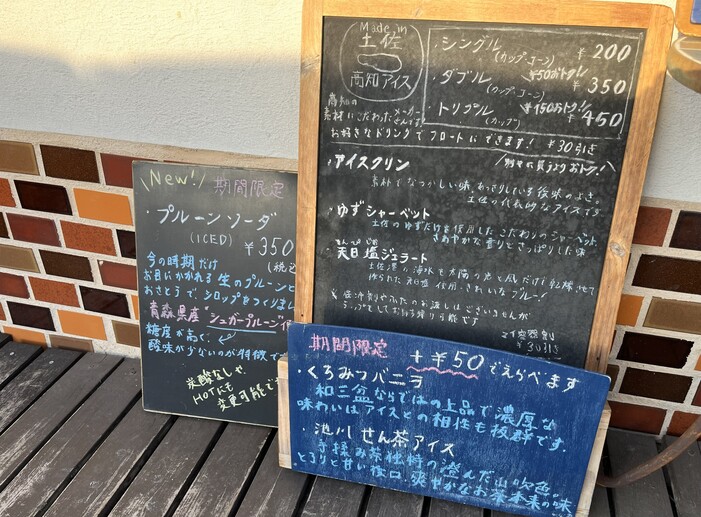 Made in
土佐
高知アイス
高知の
素材にこだわったメーカー
さんです!
・シングル
(カップ・コーン)
¥200
¥50おトク!
・ダブル
(カップ・コーン)
¥350
¥150おトク!
・トリプル
(カップ)
¥450
お好きなドリンクでフロートにできます! ¥30引き
別々に買うよりおトク!
・アイスクリン
素朴でなつかしい味、あっさりしている後味のよさ。
土佐の代表的なアイスです
・ゆずシャーベット
土佐のゆずだけを使用したこだわりのシャーベット
さわやかな香りとさっぱりした味
てんぴ えん
・天日塩ジェラート
土佐湾の海水を太陽の光と風だけで乾燥させて
作られた天日塩使用。きれいなブルー!
マイ容器割
¥30引き
New!
期間限定
・プルーンソーダ
(ICED)
¥350
(税込
今の時期だけ
お目にかかれる生のプルーンと
おさとうで、シロップをつくりまし
青森県産"シュガープルーン"使
糖度が高く、
酸味が少ないのが特徴で
炭酸なしや
HOTにも
変更可能です
期間限定
+¥50でえらべます
・くろみつバニラ
和三盆ならではの上品で濃厚な
味わいはアイスとの相性も抜群です.
・池川せん茶アイス
手揉み茶独特の澄んだ山吹色。
とろりと甘い枝口、爽やかなお茶本来の味